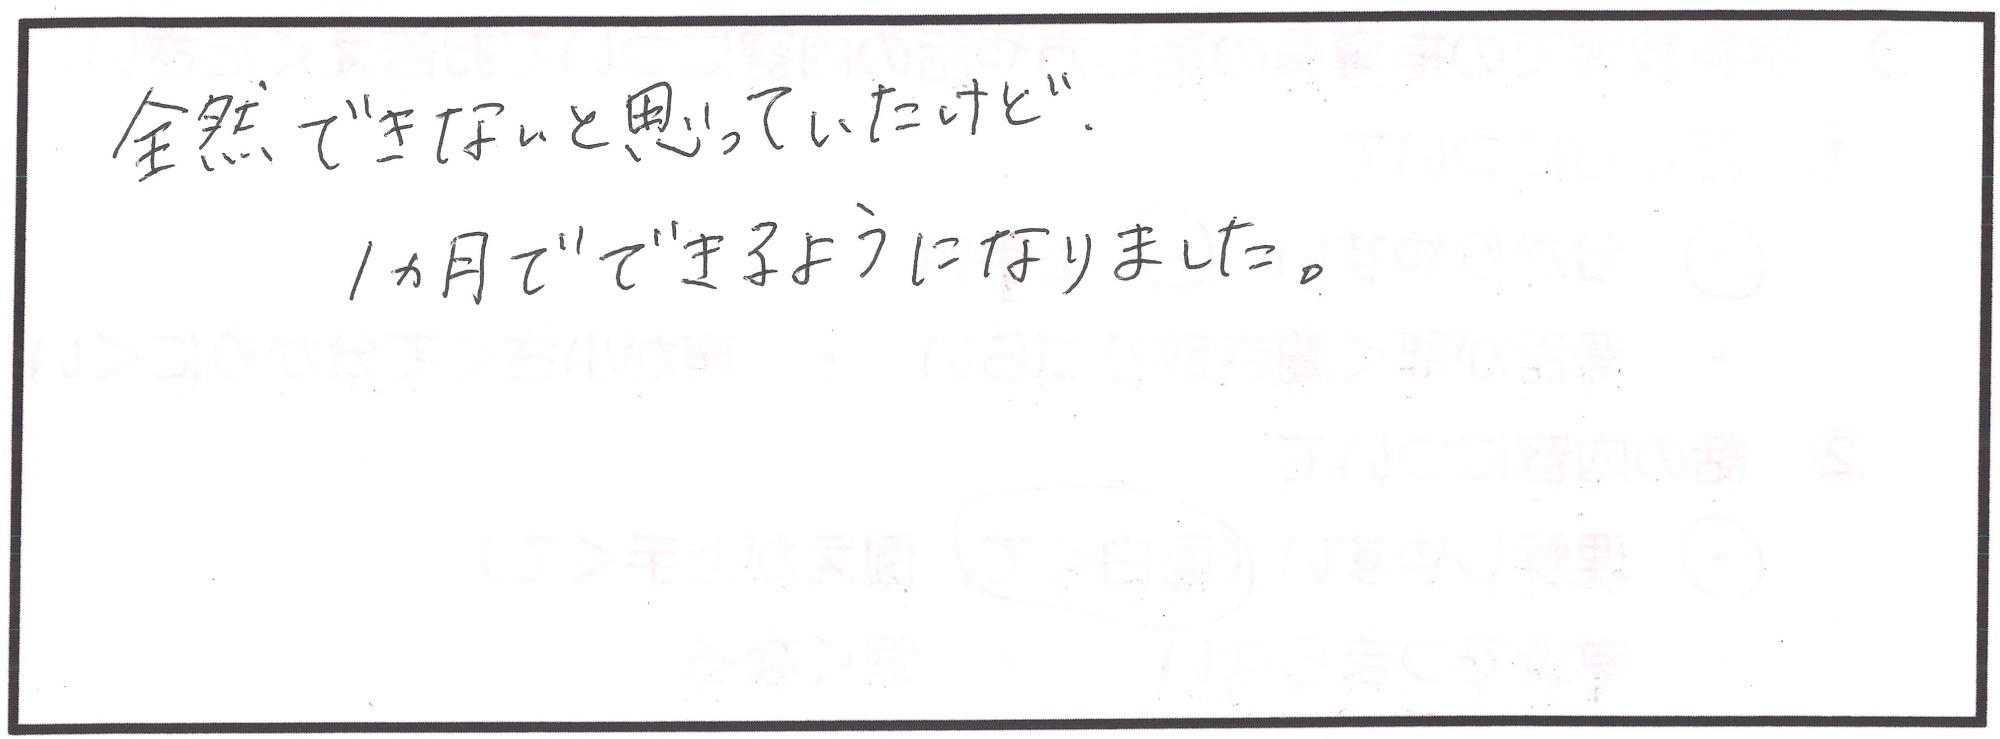 全然できないと思っていたけど、
1ヵ月でできるようになりました。